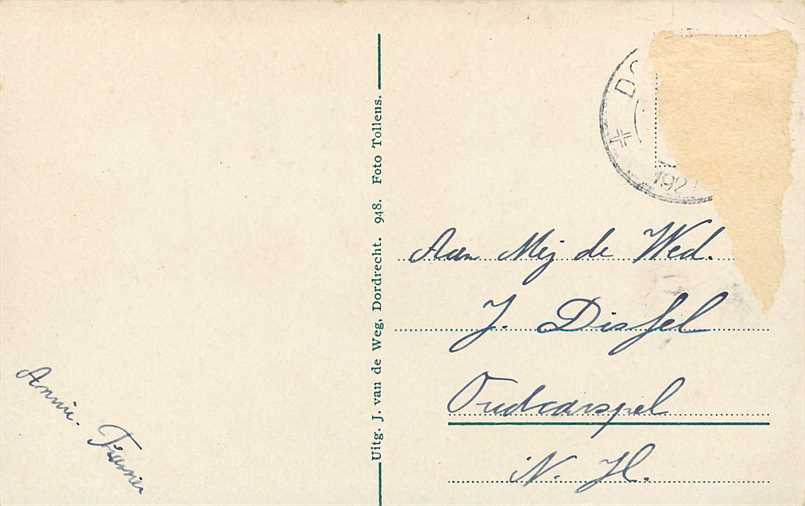 DO
192
Aan Mej de Wed.
J. Dissel
Oudcarspel
N. H.
Uitg. J. van de Weg, Dordrecht. 948. Foto Tollens.
Annie.